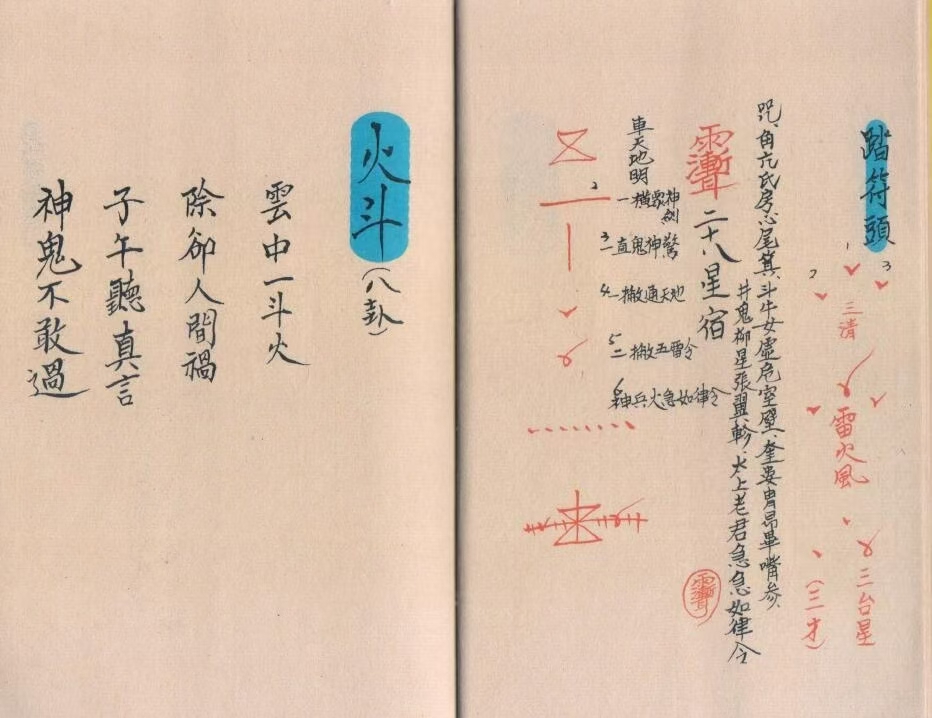 踏符頭
三清
雷火風
三台星
(三才)
咒、角亢氐房心尾箕、斗牛女虛危室壁、奎婁胃昴畢嘴参、
井鬼柳星張翼軫、太上老君急急如律令
二十八星宿
車天地明
2
一橫眾神剑
3
一直鬼神驚
4
一撇通天地
5
二撇五雷令
6
神兵火急如律令
火斗(八卦)
雲中一斗火
除卻人間禍
子午聽真言
神鬼不敢過